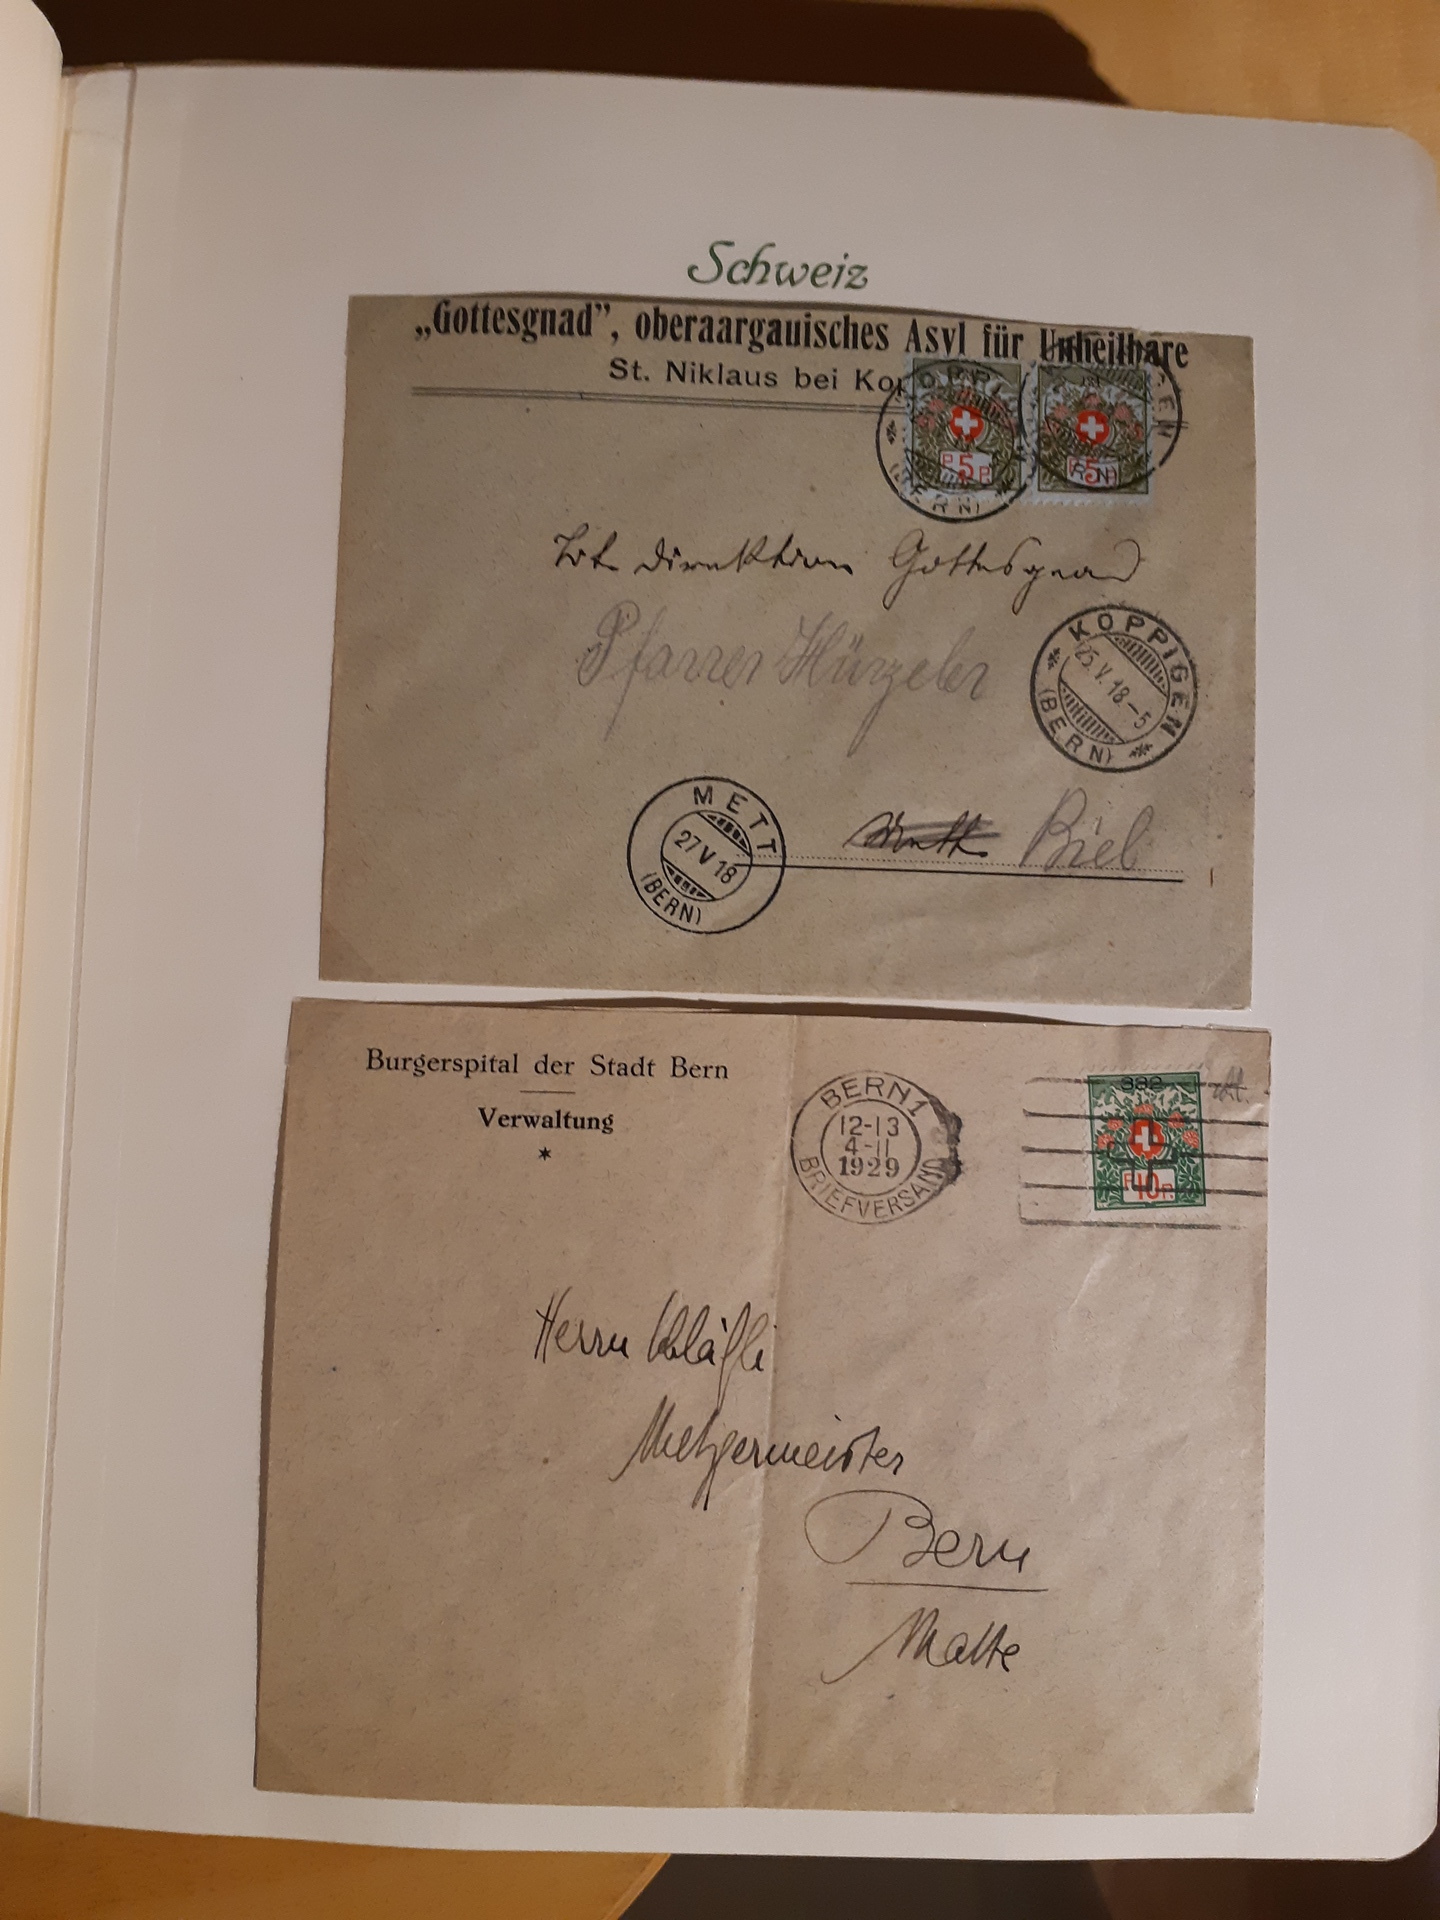 Schweiz
„Gottesgnad”, oberaargauisches Asyl für Unheilbare
St. Niklaus bei Kop
KOPPI
(BERN)
P 5 P.
GEN
5
RN)
Direktion Gottesgnad
Pfarrer Hürzeler
KOPPIGEN
25.V.18-5
(BERN)
METT
27 V 18
(BERN)
Biel
Burgerspital der Stadt Bern
Verwaltung
BERN 1
12-13
4-11
1929
BRIEFVERSAND
382
P 10 P.
Herrn Kläfli
Metzgermeister
Bern
Matte